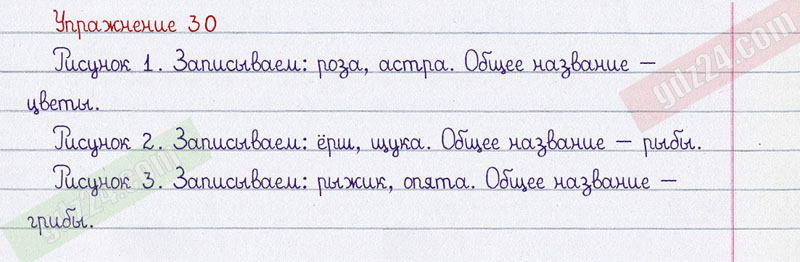 Упражнение 30
Рисунок 1. Записываем: роза, астра. Общее название –
цветы.
Рисунок 2. Записываем: ёрш, щука. Общее название – рыбы.
Рисунок 3. Записываем: рыжик, опята. Общее название –
грибы.
gdz24.com
gdz24.com